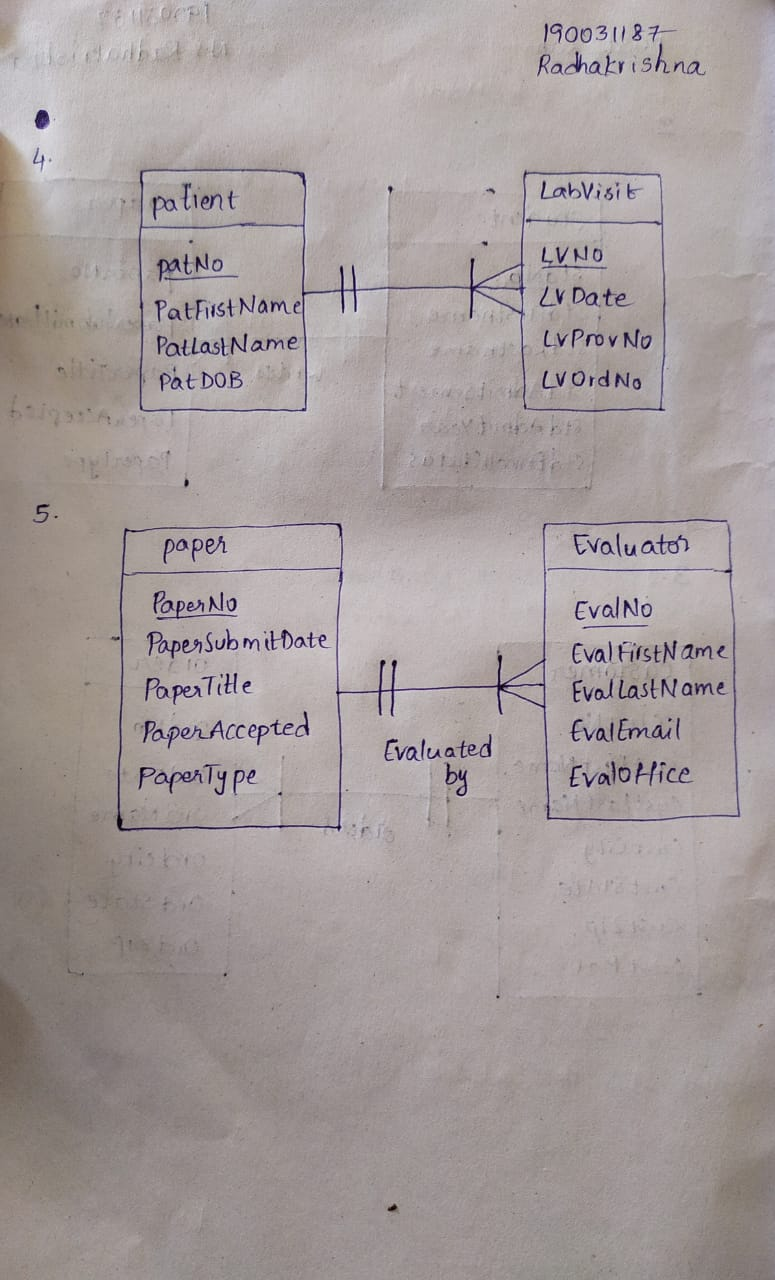 190031187
Radhakrishna
4.
patient
patNo
PatFirstName
PatLastName
PatDOB
LabVisit
LVNo
LVDate
LVProvNo
LVOrdNo
5.
paper
PaperNo
PaperSubmitDate
PaperTitle
PaperAccepted
PaperType
Evaluated
by
Evaluator
EvalNo
EvalFirstName
EvalLastName
EvalEmail
EvalOffice